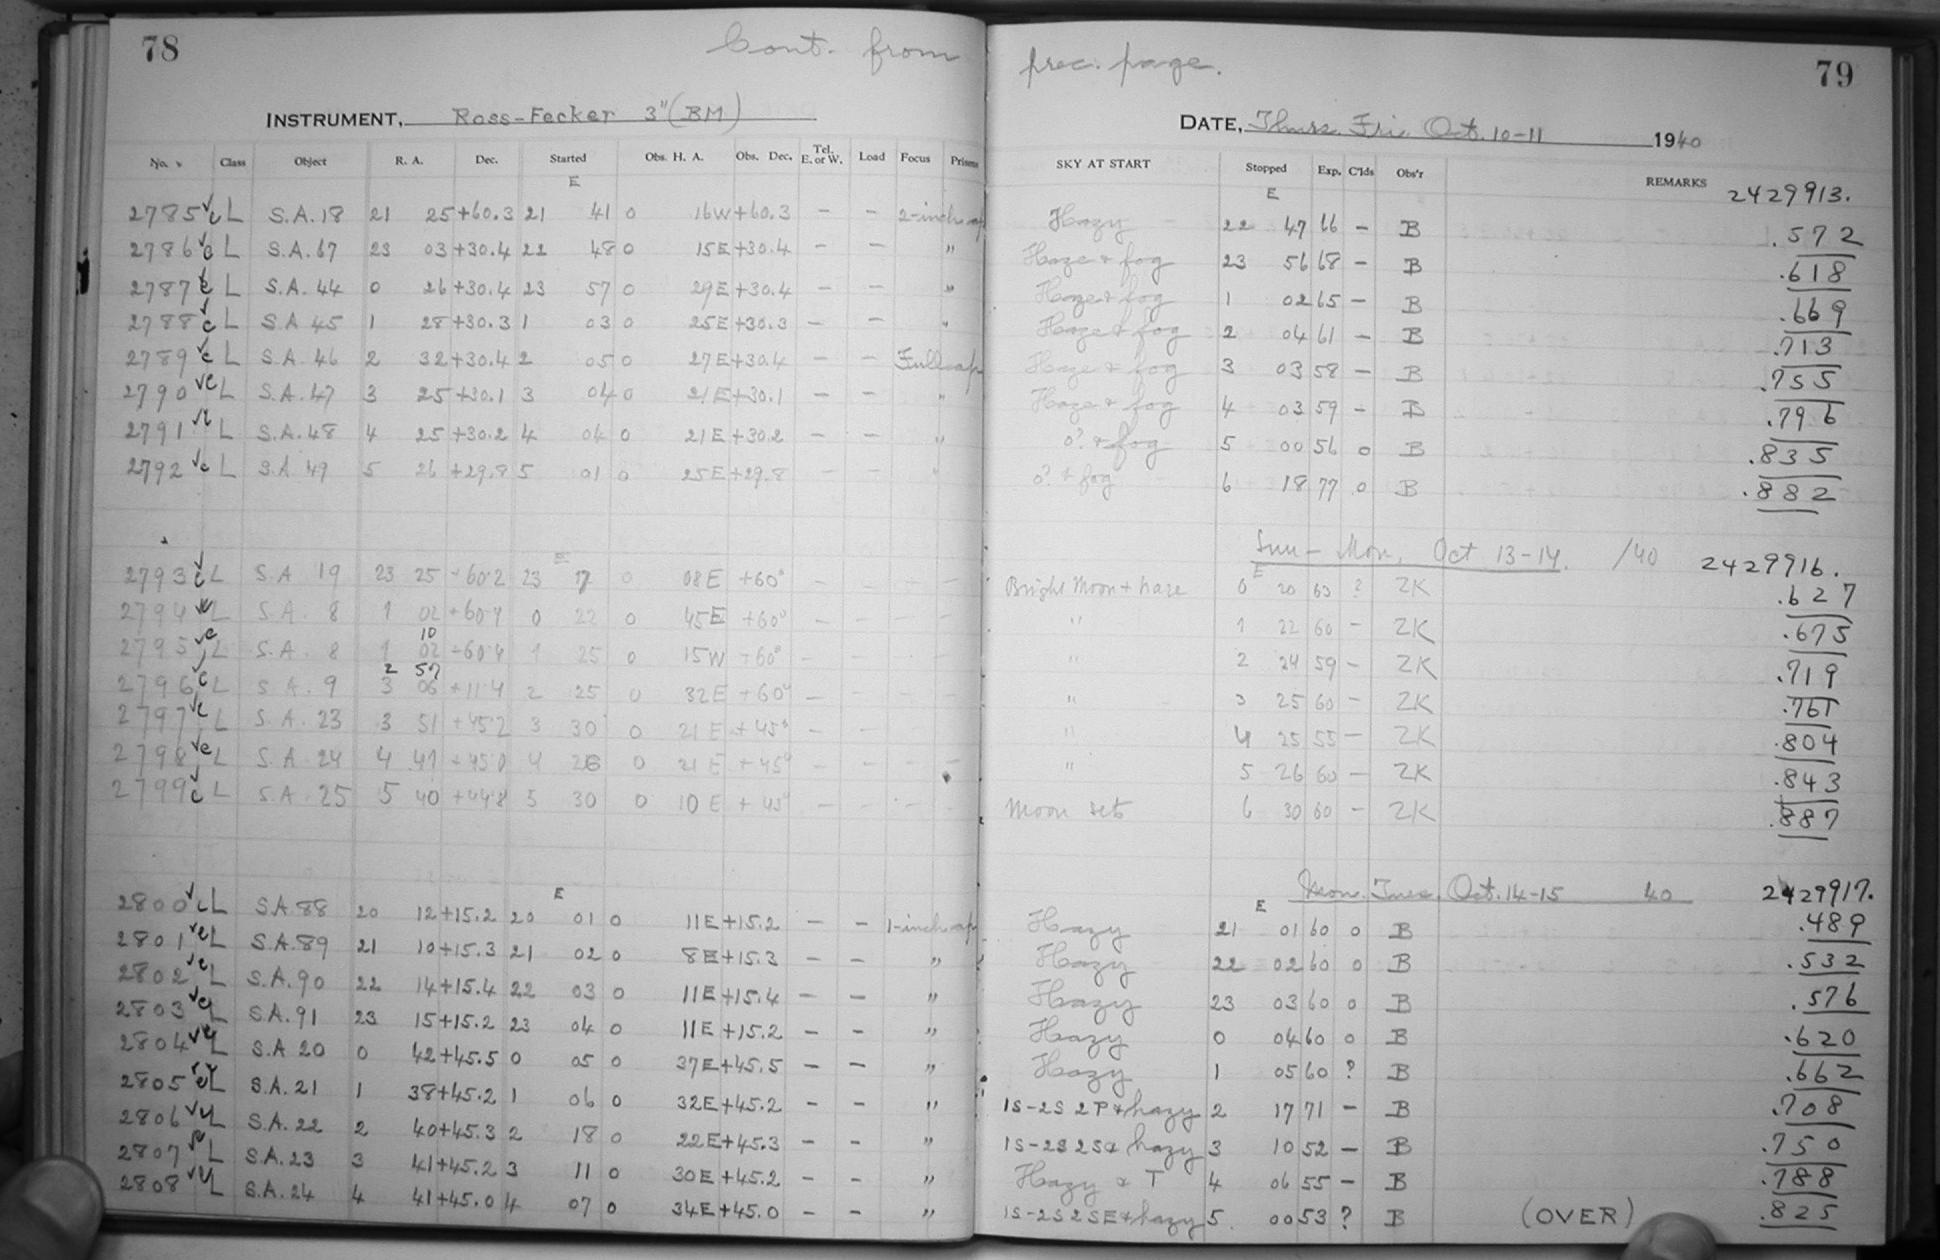 78 Cont. from prec. page. 79
INSTRUMENT, Ross-Fecker 3" (BM) DATE, Thurs. Fri. Oct. 10-11 1940
No. Class Object R. A. Dec. Started Obs. H. A. Obs. Dec. Tel. E. or W. Load Focus Prisms SKY AT START Stopped Exp. C'lds Obs'r REMARKS
E E 2429913.
2785 L S.A.18 21 25 +60.3 21 41 0 16W +60.3 - - 2-inch ap Hazy 22 47 66 - B .572
2786 L S.A.67 23 03 +30.4 22 48 0 15E +30.4 - - " Haze & fog 23 56 68 - B .618
2787 L S.A.44 0 26 +30.4 23 57 0 29E +30.4 - - " Haze & fog 1 02 65 - B .669
2788 L S.A 45 1 28 +30.3 1 03 0 25E +30.3 - - " Haze & fog 2 04 61 - B .713
2789 L S.A.46 2 32 +30.4 2 05 0 27E +30.4 - - Full ap Haze & fog 3 03 58 - B .755
2790 L S.A.47 3 25 +30.1 3 04 0 21E +30.1 - - " Haze & fog 4 03 59 - B .796
2791 L S.A.48 4 25 +30.2 4 04 0 21E +30.2 - - " 0? & fog 5 00 56 0 B .835
2792 L S.A 49 5 26 +29.8 5 01 0 25E +29.8 - - " 0? & fog 6 18 77 0 B .882
Sun - Mon, Oct 13-14. /40 2429916.
E E
2793 L S.A 19 23 25 +60.2 23 17 0 08E +60° - - - - Bright Moon + haze 0 20 63 ? ZK .627
2794 L S.A. 8 1 02 +60.4 0 22 0 45E +60° - - - - " 1 22 60 - ZK .675
10
2795 L S.A. 8 1 02 +60.4 1 25 0 15W +60° - - - - " 2 24 59 - ZK .719
2 57
2796 L S.A. 9 3 06 +11.4 2 25 0 32E +60° - - - - " 3 25 60 - ZK .761
2797 L S.A. 23 3 51 +45.2 3 30 0 21E +45° - - - - " 4 25 55 - ZK .804
2798 L S.A. 24 4 47 +45.0 4 26 0 21E +45° - - - - " 5 26 60 - ZK .843
2799 L S.A. 25 5 40 +44.8 5 30 0 10E +45° - - - - Moon set 6 30 60 - ZK .887
Mon. Tues. Oct. 14-15 40 2429917.
E E
2800 L S.A.88 20 12 +15.2 20 01 0 11E +15.2 - - 1-inch ap Hazy 21 01 60 0 B .489
2801 L S.A.89 21 10 +15.3 21 02 0 8E +15.3 - - " Hazy 22 02 60 0 B .532
2802 L S.A.90 22 14 +15.4 22 03 0 11E +15.4 - - " Hazy 23 03 60 0 B .576
2803 L S.A.91 23 15 +15.2 23 04 0 11E +15.2 - - " Hazy 0 04 60 0 B .620
2804 L S.A 20 0 42 +45.5 0 05 0 37E +45.5 - - " Hazy 1 05 60 ? B .662
2805 L S.A.21 1 38 +45.2 1 06 0 32E +45.2 - - " 1S-2S 2P & hazy 2 17 71 - B .708
2806 L S.A.22 2 40 +45.3 2 18 0 22E +45.3 - - " 1S-2S 2S & hazy 3 10 52 - B .750
2807 L S.A.23 3 41 +45.2 3 11 0 30E +45.2 - - " Hazy & T 4 06 55 - B .788
2808 L S.A.24 4 41 +45.0 4 07 0 34E +45.0 - - " 1S-2S 2SE & hazy 5 00 53 ? B (OVER) .825